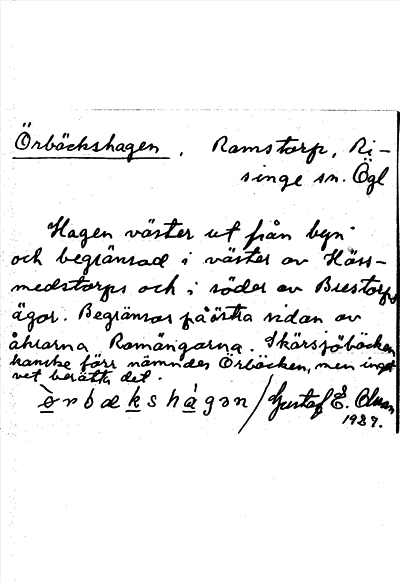 Örbäckshagen. Ramstorp, Ri-
singe sn. Ögl
Hagen väster ut från byn
och begränsad i väster av Häss-
medstorps och i söder av Brestorps
ägor. Begränsas på östra sidan av
åkrarna Romängarna. Skärsjöbäcken
kanske förr nämndes Örbäcken, men inget
vet berätta det.
òrbækshàgən / Gustaf E. Olsson
1937.